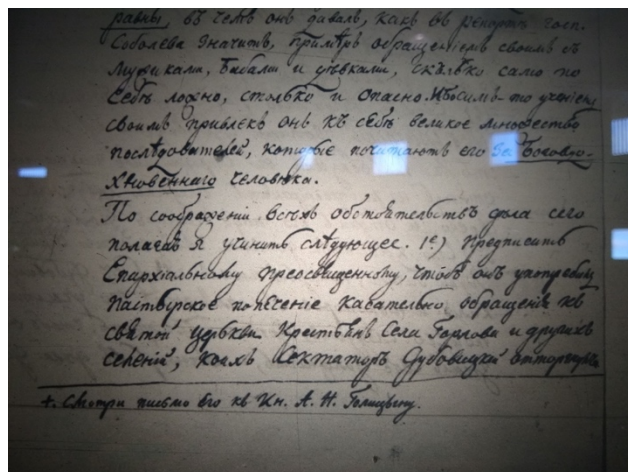 равны, въ чемъ онъ давалъ, какъ въ репортѣ госп.
Соболева значитъ, примѣръ обращенiемъ своимъ съ
мужиками, бабами и дѣвками, сколько само по
себѣ ложно, столько и опасно. Таковымъ-то ученiемъ
своимъ привлекъ онъ къ себѣ великое множество
послѣдователей, которые почитаютъ его за боговдо-
хновеннаго человѣка.
По соображенiи всѣхъ обстоятельствъ дѣла сего
полагаю я учинить слѣдующее. 1е) Предписать
Епархiальному преосвященному, чтобъ онъ употребилъ
пастырское попеченiе касательно обращенiя къ
святой церкви крестьянъ Села Горлова и другихъ
селенiй, коихъ Сектаторъ Дубовицкiй отторгнулъ
+. Смотри письмо его къ Кн. А. Н. Голицыну.